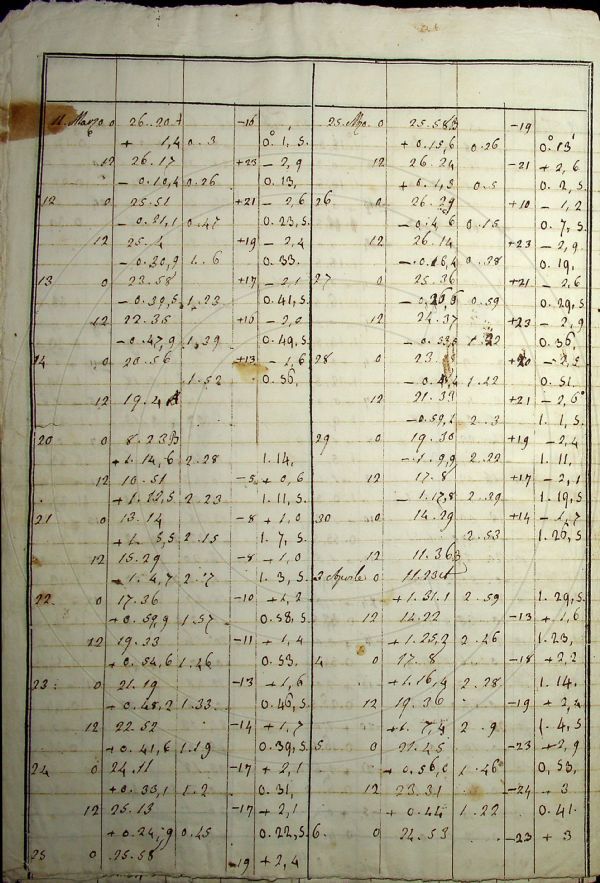 11. Marzo 0 26..20 + -16
+ 1,4 0..3 0. 1,5.
12 26.17 +23 - 2,9
- 0.10,4 0.26 0.13,
12 0 25.51 +21 - 2,6
- 0.21,1 0.47 0.23,5.
12 25.4 +19 - 2,4
- 0.30,9 1..6 0.33.
13 0 23.58 +17 - 2,1
- 0.39,5 1.23 0.41,5.
12 22.35 +16 - 2,0
- 0.47,9 1.39 0.49,5.
14 0 20.56 +13 - 1,6
1.52 0.56,
12 19.4
20 0 8.23
+1.14,6 2.28 1.14,
12 10.51 -5 + 0,6
+1.12,5 2.23 1.11,5.
21 0 13.14 -8 + 1,0
2.15 1.7,5
12 15.29 -8 + 1,0
1.4,7 1.3,5.
22. 0 17.36 -10 + 1,2
+0.59,9 1.57 0.58,5.
12 19.33 -11 + 1,4
+0.54,6 1.46 0.53.
23. 0 21.19 -13 + 1,6
+0.48,2 1.33. 0.46,5.
12 22.52 -14 + 1,7
+0.41,6 1.19 0.39,5.
24 0 24.11 -17 + 2,1
+0.33,1 1.2 0.31,
12 25.13 -17 + 2,1
+0.24,9 0.45 0.22,5
25 0 25.58 -19 + 2,4
25. Mzo. 0 25.58 -19
+ 0.15,6 0.26 0.13
12 26.24 -21 + 2,6
+ 0.4,5 0.5 0.2,5,
26. 0 26.29 +10 - 1,2
0.15 0.7,5
12 26.14 +23 - 2,9
0.28 0.19.
27 0 25.36 +21 - 2,6
0.59 0.29,5
12 24.37 +23 - 2,9
0.36,
28 0 - 2,5
1.22 0.51.
12 21.33 +21 - 2,6
-0.59,1 2.3 1.1,5.
29 0 19.30 +19 - 2,4
-1.9,9 2.22 1.11.
12 17.8 +17 - 2,1
- 1.17,8 2.29 1.19,5
30 0 14.29 +14 - 1,7
2.53 1.26,5
12 11.36
3 Aprile 0 11.23
+1.31.1 2.59 1.29,5.
12 14.22 -13 + 1,6
+1.25,2 2.46 1.23,
4 0 17.8 -18 + 2,2
+1.16,4 2.28 1.14.
12 19.36 -19 + 2,4
+1.7,4 2.9 1.4,5
5. 0 21.45 -23 + 2,9
+0.56,0 1.46 0.53,
12 23.31 -24 + 3
+0.44 1.22 0.41.
6. 0 24.53 -23 + 3